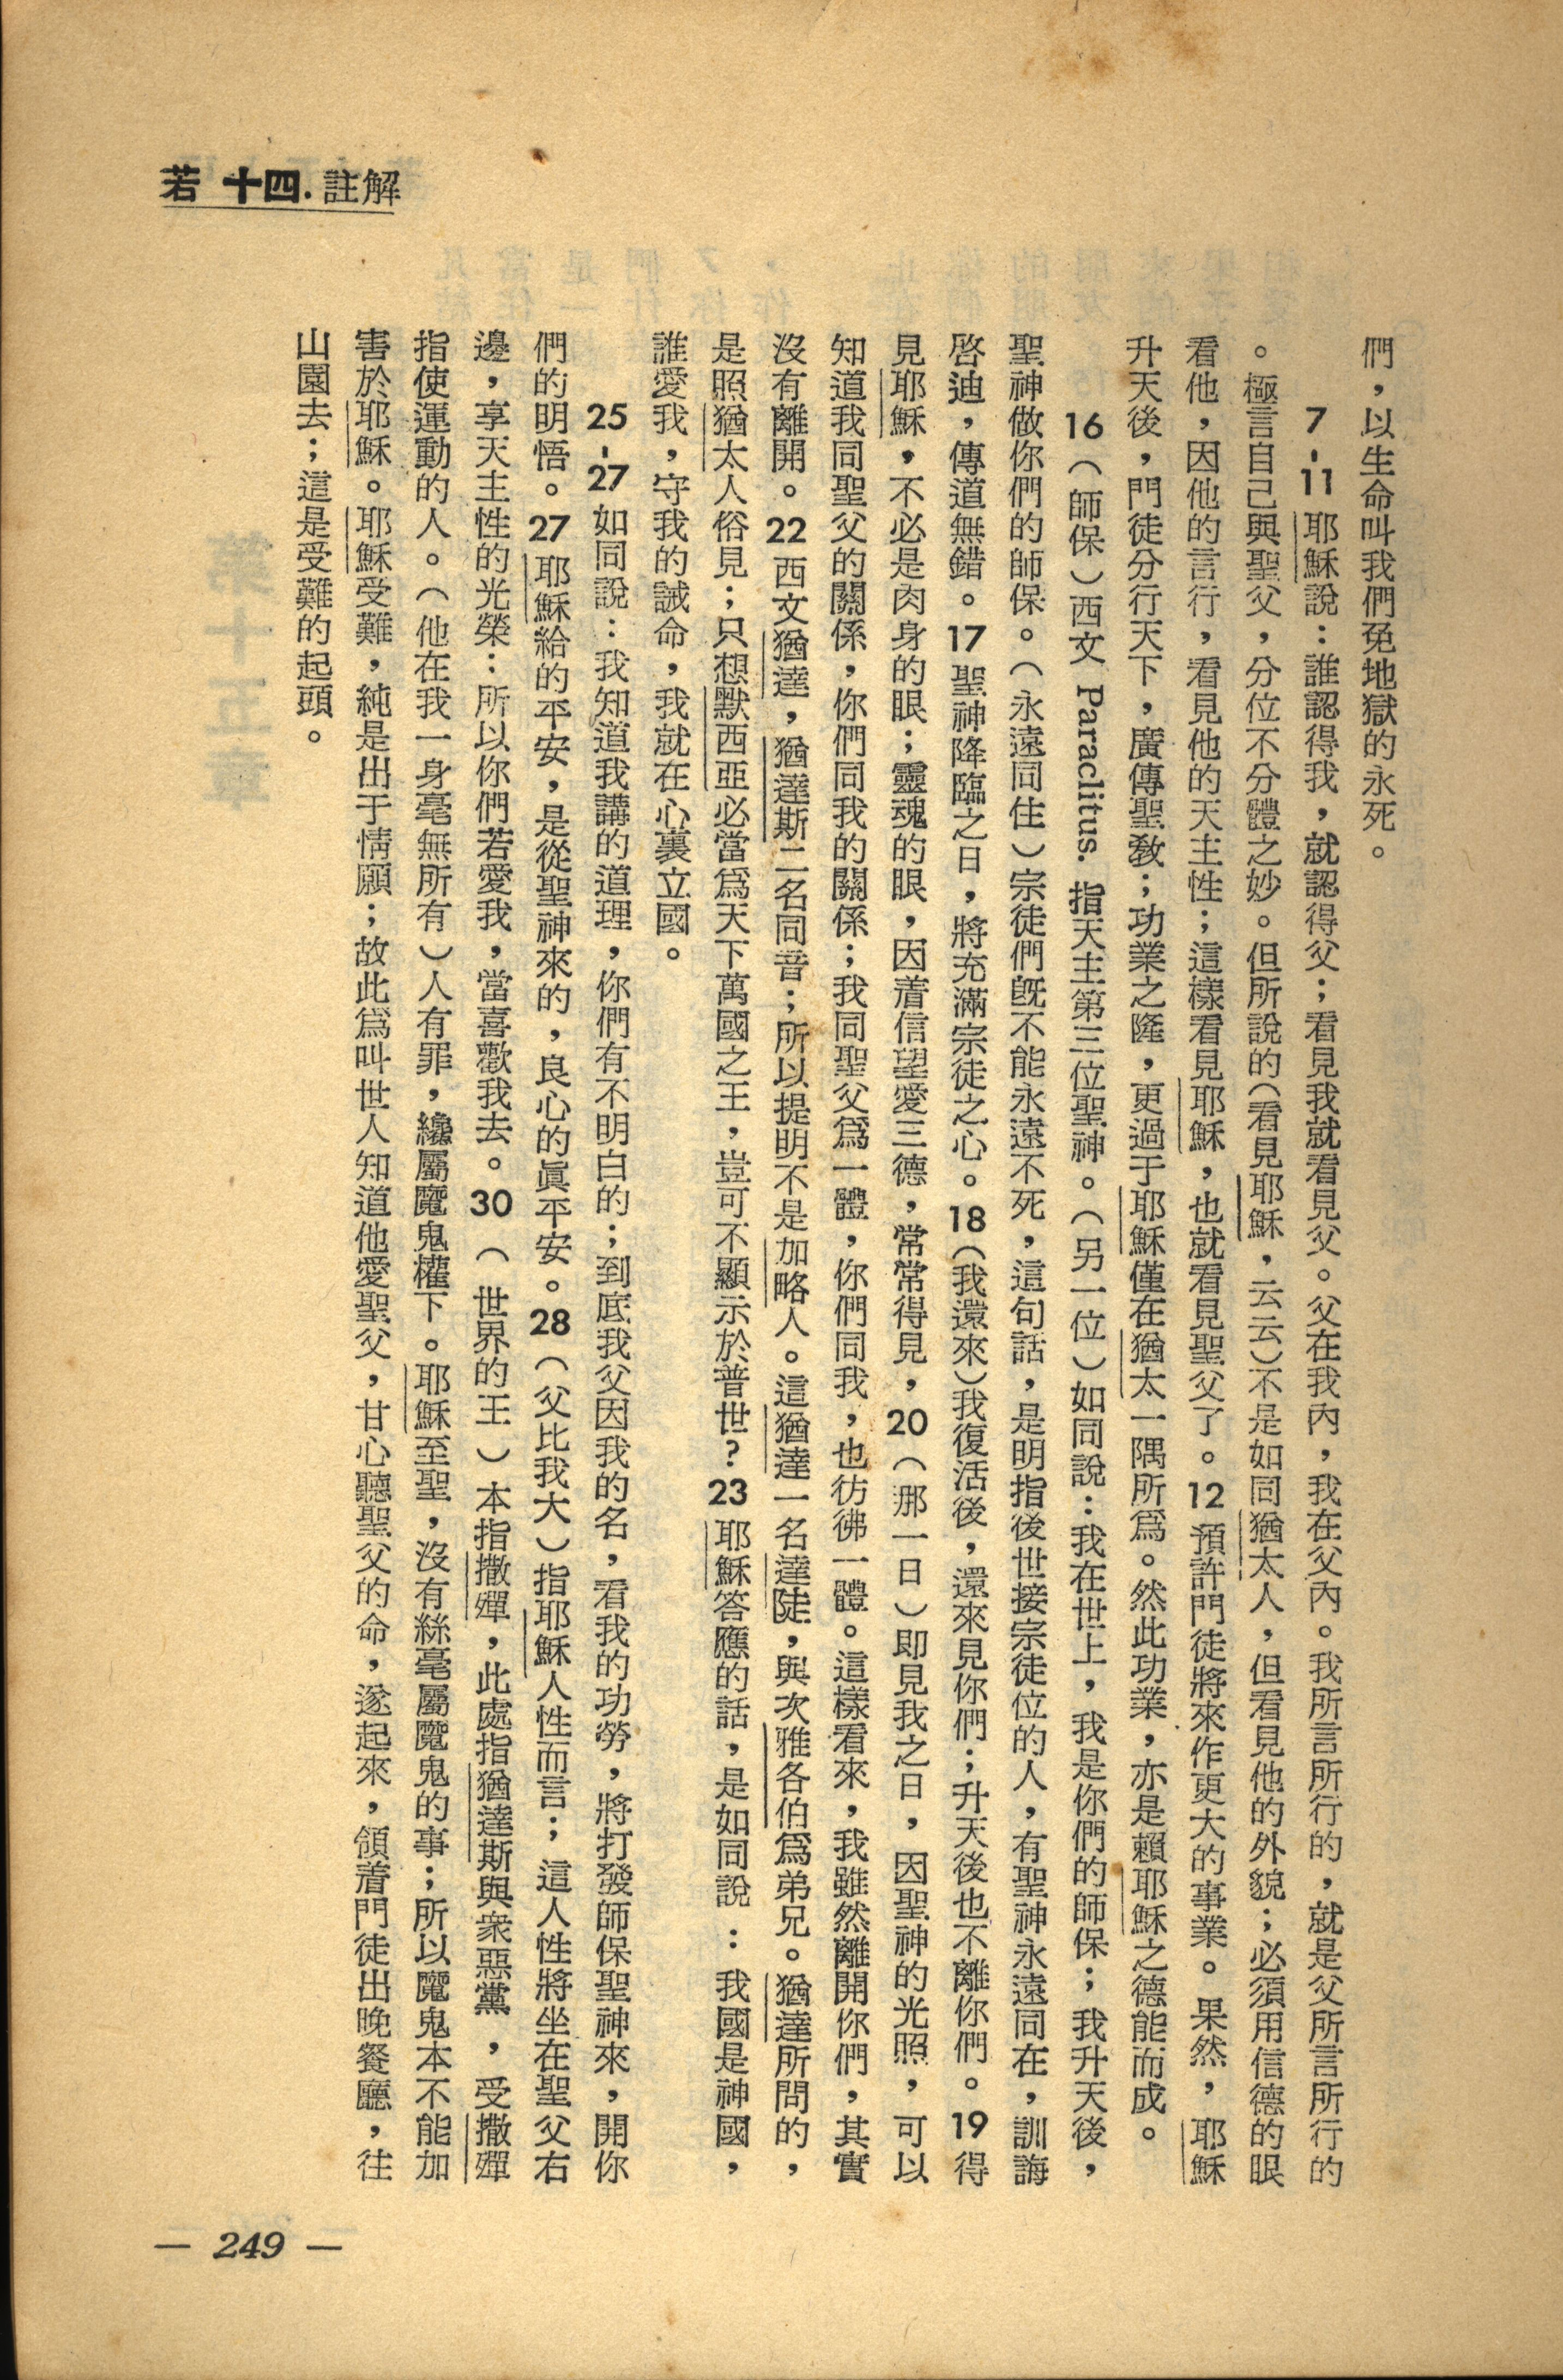 若 十四.註解
們，以生命叫我們免地獄的永死。
7-11 耶穌說：誰認得我，就認得父；看見我就看見父。父在我內，我在父內。我所言所行的，就是父所言所行的
。極言自己與聖父，分位不分體之妙。但所說的（看見耶穌，云云）不是如同猶太人，但看見他的外貌；必須用信德的眼
看他，因他的言行，看見他的天主性；這樣看見耶穌，也就看見聖父了。12 預許門徒將來作更大的事業。果然，耶穌
升天後，門徒分行天下，廣傳聖教；功業之隆，更過于耶穌僅在猶太一隅所爲。然此功業，亦是賴耶穌之德能而成。
16（師保）西文 Paraclitus. 指天主第三位聖神。（另一位）如同說：我在世上，我是你們的師保；我升天後，
聖神做你們的師保。（永遠同住）宗徒們旣不能永遠不死，這句話，是明指後世接宗徒位的人，有聖神永遠同在，訓誨
啓迪，傳道無錯。17 聖神降臨之日，將充滿宗徒之心。18（我還來）我復活後，還來見你們；升天後也不離你們。19 得
見耶穌，不必是肉身的眼；靈魂的眼，因着信望愛三德，常常得見，20（那一日）即見我之日，因聖神的光照，可以
知道我同聖父的關係，你們同我的關係；我同聖父爲一體，你們同我，也彷彿一體。這樣看來，我雖然離開你們，其實
沒有離開。22 西文猶達，猶達斯二名同音；所以提明不是加略人。這猶達一名達陡，與次雅各伯爲弟兄。猶達所問的，
是照猶太人俗見；只想默西亞必當爲天下萬國之王，豈可不顯示於普世？23 耶穌答應的話，是如同說：我國是神國，
誰愛我，守我的誡命，我就在心裏立國。
25-27 如同說：我知道我講的道理，你們有不明白的；到底我父因我的名，看我的功勞，將打發師保聖神來，開你
們的明悟。27 耶穌給的平安，是從聖神來的，良心的眞平安。28（父比我大）指耶穌人性而言；這人性將坐在聖父右
邊，享天主性的光榮：所以你們若愛我，當喜歡我去。30（世界的王）本指撒殫，此處指猶達斯與衆惡黨，受撒殫
指使運動的人。（他在我一身毫無所有）人有罪，纔屬魔鬼權下。耶穌至聖，沒有絲毫屬魔鬼的事；所以魔鬼本不能加
害於耶穌。耶穌受難，純是出于情願；故此爲叫世人知道他愛聖父，甘心聽聖父的命，遂起來，領着門徒出晚餐廳，往
山園去；這是受難的起頭。
— 249 —